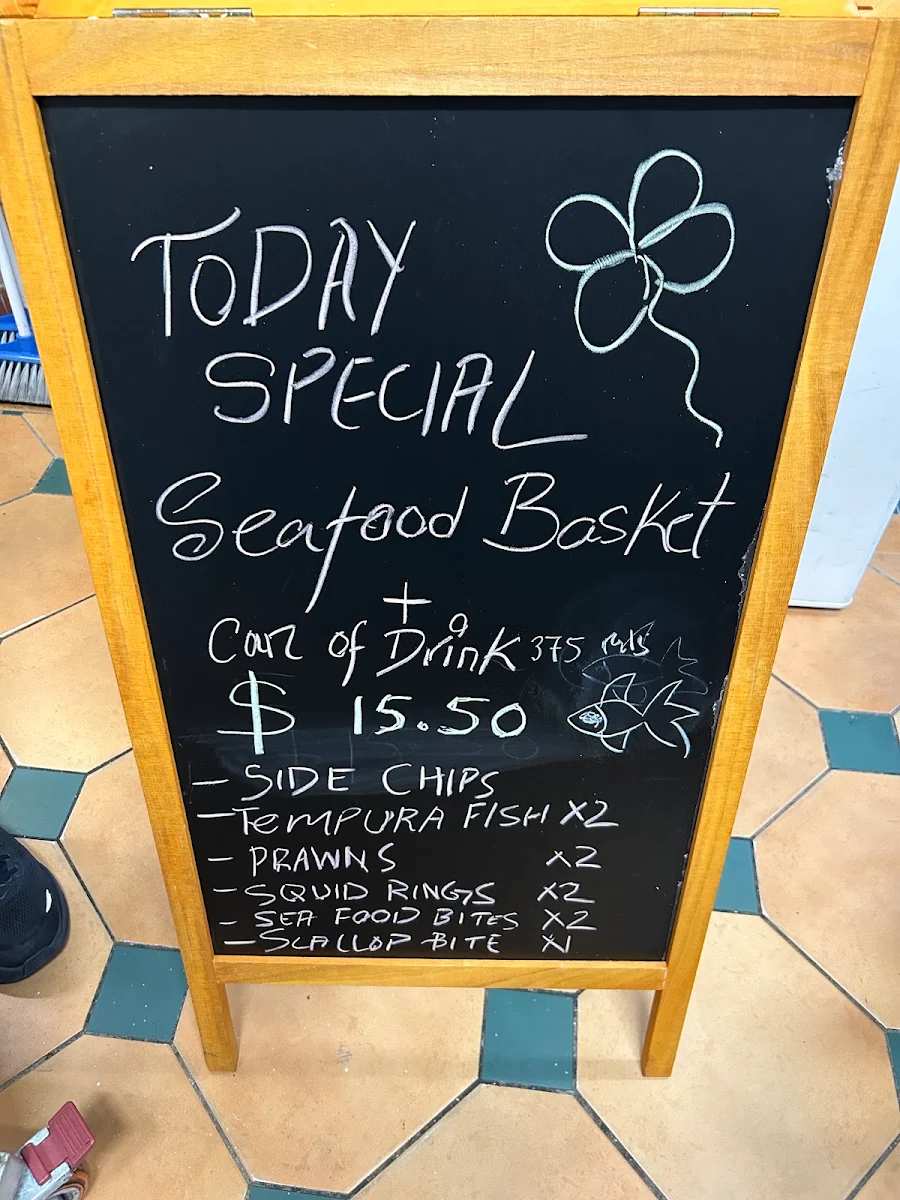 TODAY
SPECIAL
Seafood Basket
+
Can of Drink 375 mls
$ 15.50
- SIDE CHIPS
- TEMPURA FISH X2
- PRAWNS X2
- SQUID RINGS X2
- SEA FOOD BITES X2
- SCALLOP BITE X1